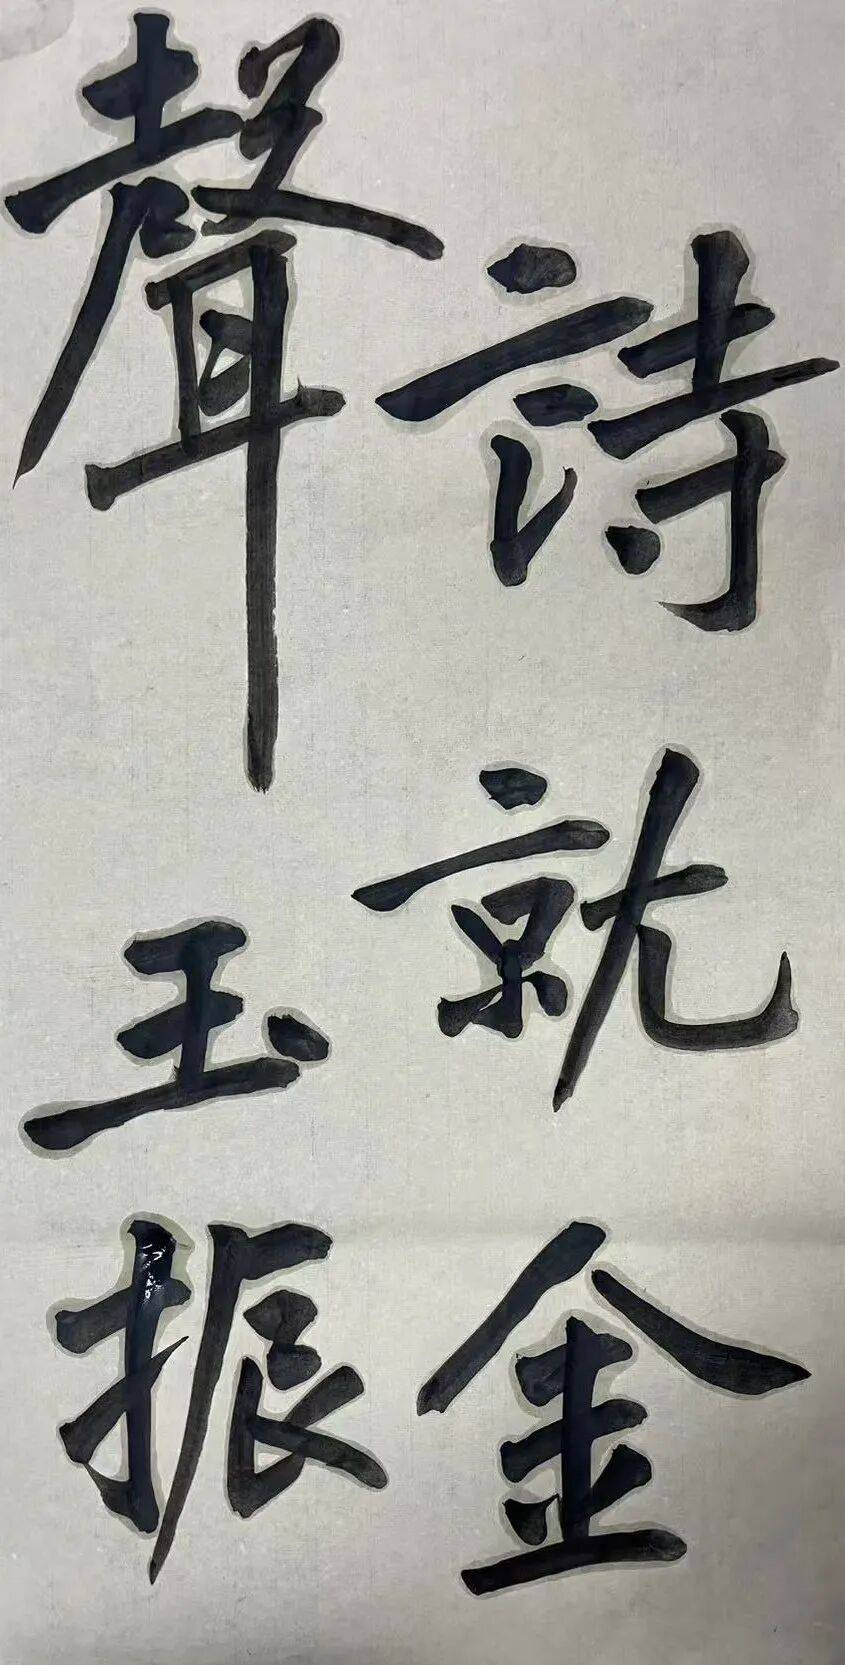 詩就金
聲玉振